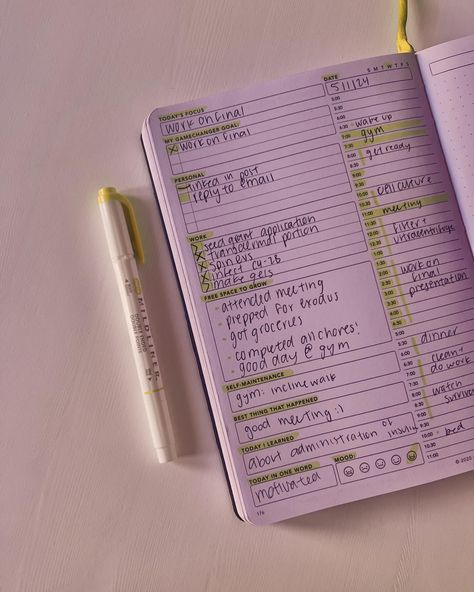 TODAY'S FOCUS
work on final
MY GAMECHANGER GOAL:
work on final
PERSONAL
linked in post
reply to email
WORK
seed grant application
transdermal portion
spin evs
infect
make gels
FREE SPACE TO GROW
attended meeting
prepped for exodus
got groceries
completed all chores!
good day @ gym
SELF-MAINTENANCE
gym: incline walk
BEST THING THAT HAPPENED
good meeting :)
TODAY I LEARNED
about administration of insulin
TODAY IN ONE WORD
motivated
MOOD:
1/6
DATE
S M T W T F S
5/1/24
5:00
6:00
6:30 wake up
7:00 gym
7:30
8:00 get ready
8:30
9:00
9:30
10:00 cell culture
10:30
11:00 meeting
11:30
12:00 filter +
12:30 ultracentrifuge
1:00
1:30
2:00 work on
2:30 final
3:00 presentation
3:30
4:00
5:00
6:00 dinner
6:30
7:00 clean +
do work
8:00
watch
9:00 survivor
10:00
10:30 bed
11:00
© 2020
MILDLINER